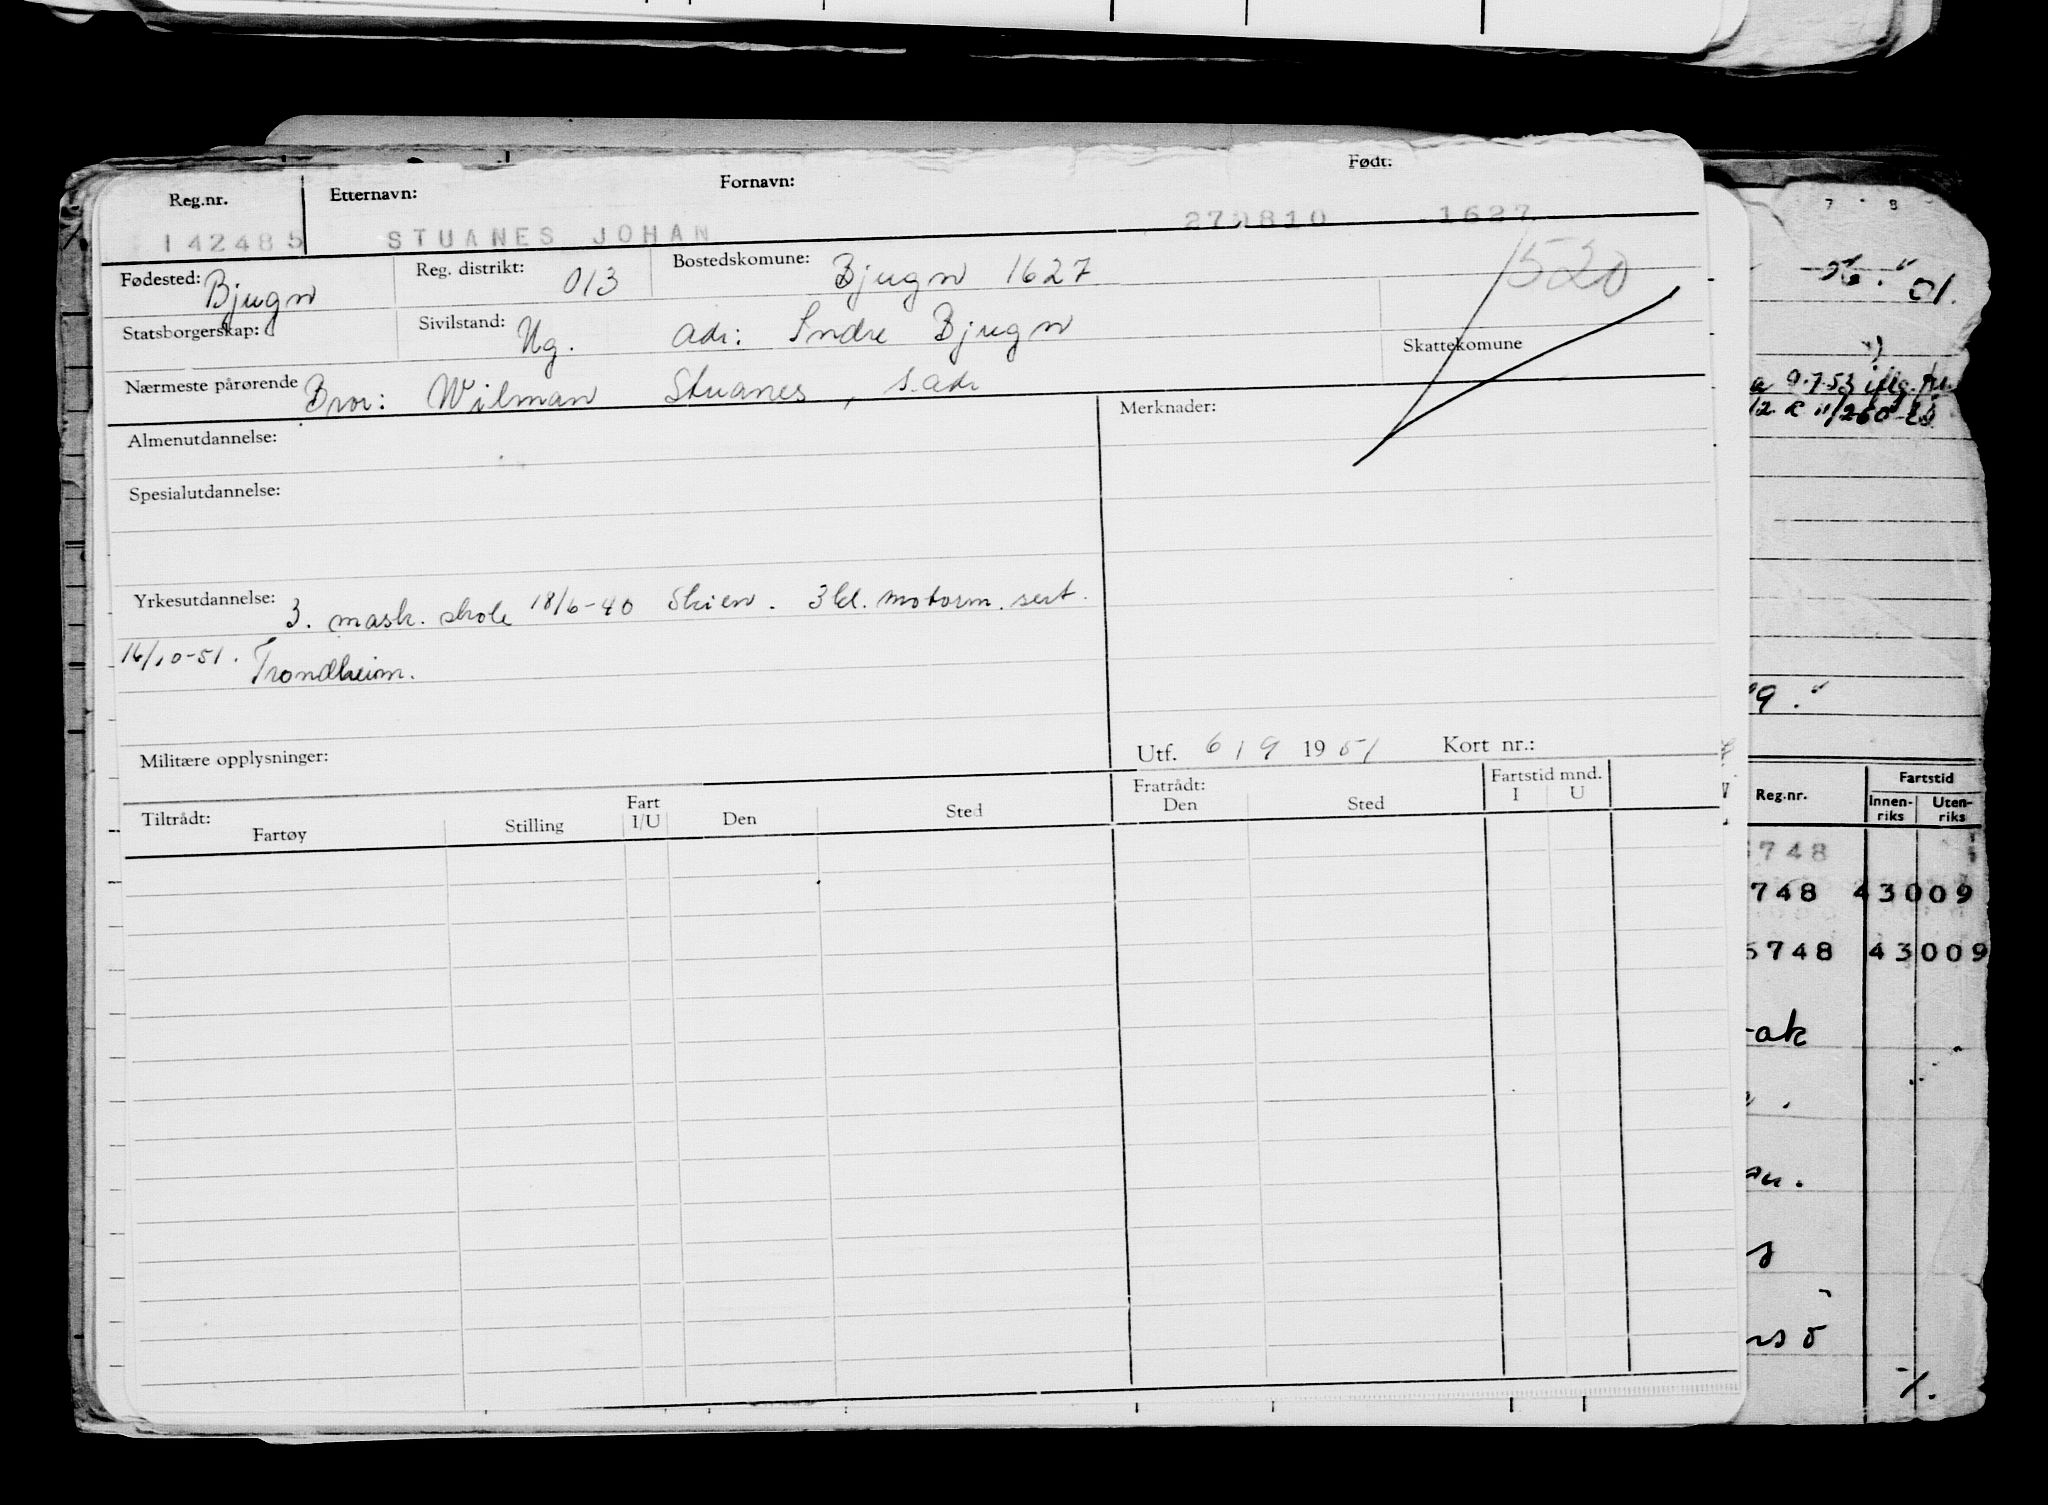 Reg.nr. Etternavn: Fornavn: Født:
142485 STUANES JOHAN 270810 1627
Fødested: Bjugn Reg. distrikt: 013 Bostedskomune: Bjugn 1627 1520
Statsborgerskap: Sivilstand: Ug. Adr: Indre Bjugn Skattekomune
Nærmeste pårørende Bror: Wilman Stuanes, s. adr
Almenutdannelse: Merknader:
Spesialutdannelse:
Yrkesutdannelse: 3. mask. skole 18/6-40 Skien. 3 kl. motorm. sert.
16/10-51. Trondheim.
Militære opplysninger: Utf. 6 / 9 1951 Kort nr.:
Tiltrådt: Fratrådt: Fartstid mnd.
Fartøy Stilling Fart I/U Den Sted Den Sted I U
7 8
01.
a 9.7.53 iflg.
9."
Reg.nr. Fartstid
Innen-riks Uten-riks
748
748 43009
5748 43009